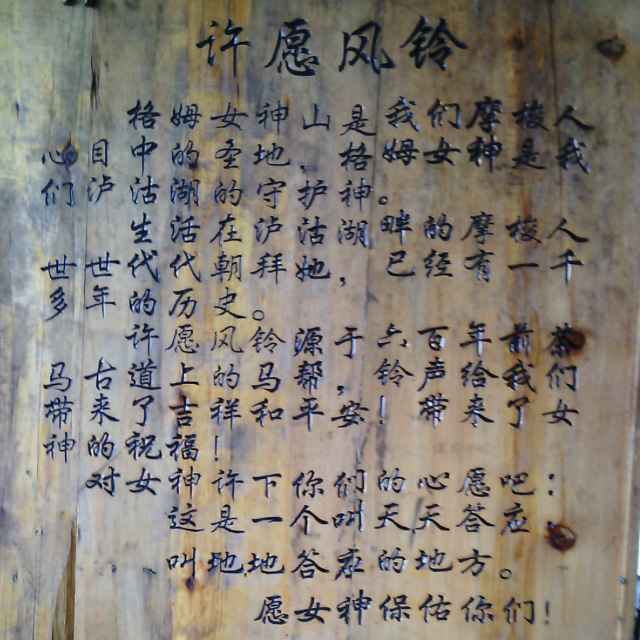 许愿风铃
格姆女神山是我们摩梭人
心目中的圣地,格姆女神是我
们泸沽湖的守护神。
生活在泸沽湖畔的摩梭人
世世代代朝拜她,已经有一千
多年的历史。
许愿风铃源于六百年前茶
马古道上的马帮,铃声给我们
带来了吉祥和平安!带来了女
神的祝福!
对女神许下你们的心愿吧:
这是一个叫天天答应
叫地地答应的地方。
愿女神保佑你们!